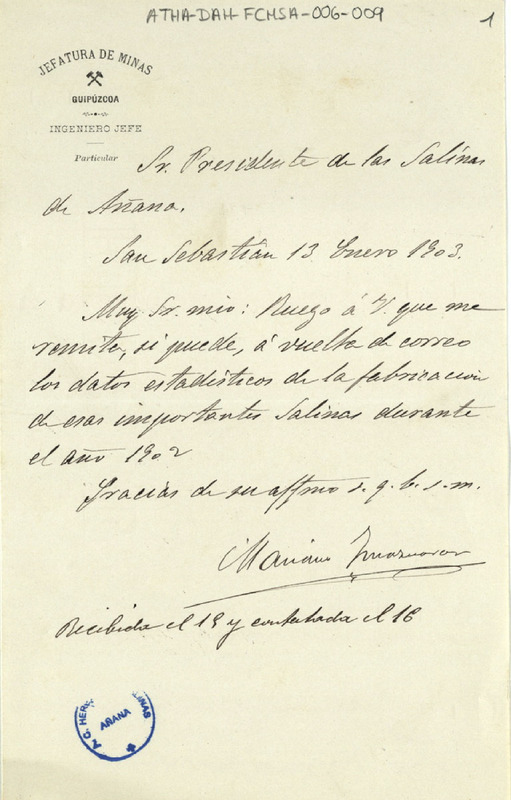 ATHA-DAH-FCMSA-006-009
1
JEFATURA DE MINAS
GUIPÚZCOA
INGENIERO JEFE
Particular
Sr. Presidente de las Salinas
de Añana.
San Sebastián 13 Enero 1903.
Muy Sr. mio: Ruego á V. que me
remita, si puede, á vuelta de correo
los datos estadísticos de la fabricación
de esas importantes Salinas durante
el año 1902
Gracias de su affmo s. q. b. s. m.
Mariano
Recibida el 15 y contestada el 16
AÑANA